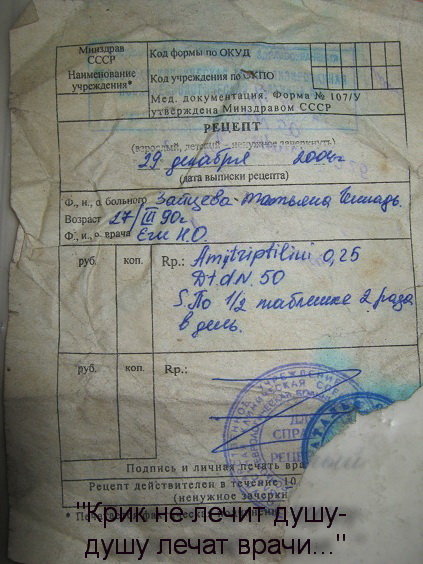 Минздрав
СССР
Код формы по ОКУД
Наименование
учреждения*
Код учреждения по ОКПО
Мед. документация. Форма № 107/У
утверждена Минздравом СССР
РЕЦЕПТ
(взрослый, детский – ненужное зачеркнуть)
29 декабря 2004г
(дата выписки рецепта)
Ф., и., о. больного Зайцева Татьяна Геннадь.
Возраст 27/III 90г
Ф., и., о. врача Еги Н.О
руб. коп. Rp.: Amitriptilini 0,25
D.t.d N. 50
S. По 1/2 таблетке 2 раза
в день.
руб. коп. Rp.:
Подпись и личная печать вра
Рецепт действителен в течение 10
(ненужное зачерки
"Крик не лечит душу-
душу лечат врачи..."